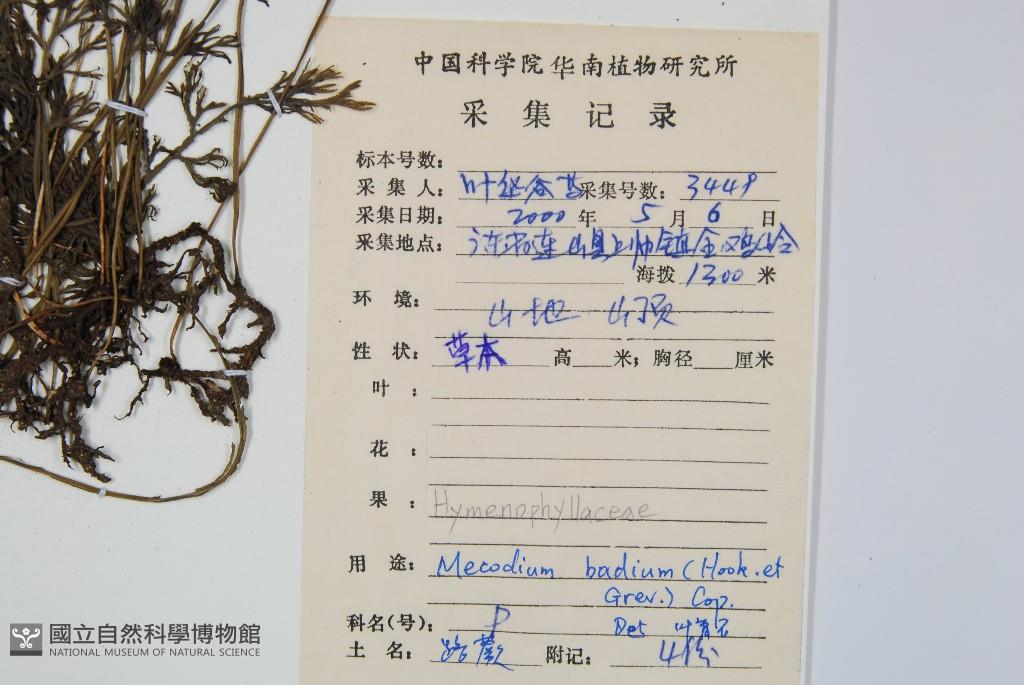 中国科学院华南植物研究所
采集记录
标本号数：
采集人：叶华谷等 采集号数：3449
采集日期：2000年5月6日
采集地点：广东省连山县上帅镇金鸡岭
海拨1300米
环境：山地 山顶
性状：草本 高 米；胸径 厘米
叶：
花：
果：
Hymenophyllaceae
用途：Mecodium badium (Hook. et
Grev.) Cop.
科名(号)：P Det
土名：路蕨 附记：4份
國立自然科學博物館
NATIONAL MUSEUM OF NATURAL SCIENCE